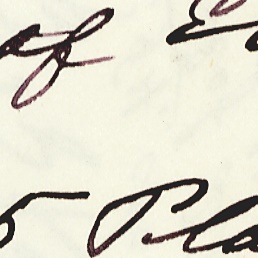 of E
5 Pla